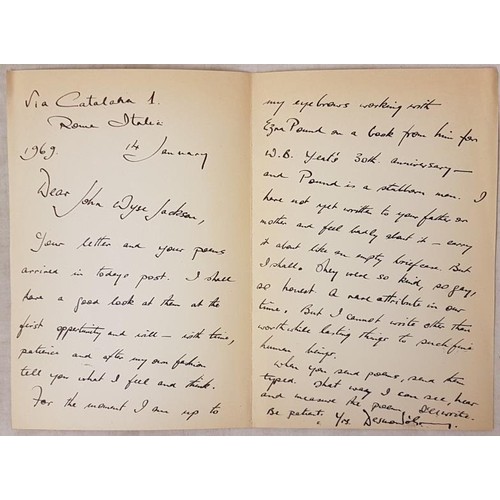 Via Catalana 1.
Rome Italia
1969. 14 January
Dear John Wyse Jackson,
Your letter and your poems
arrived in todays post. I shall
have a good look at them at the
first opportunity and will – with time,
patience and after my own fashion
tell you what I feel and think.
For the moment I am up to
my eyebrows working with
Ezra Pound on a book from him for
W.B. Yeats 30th. anniversary –
and Pound is a stubborn man. I
have not yet written to your father or
mother and feel badly about it – carry
it about like an empty briefcase. But
I shall. They were so kind, so gay,
so honest. A rare attribute in our
time. But I cannot write other than
worthwhile lasting things to such fine
human beings.
When you send poems, send them
typed. That way I can see, hear
and measure the poem. I'll write.
Be patient. Yrs. Desmond